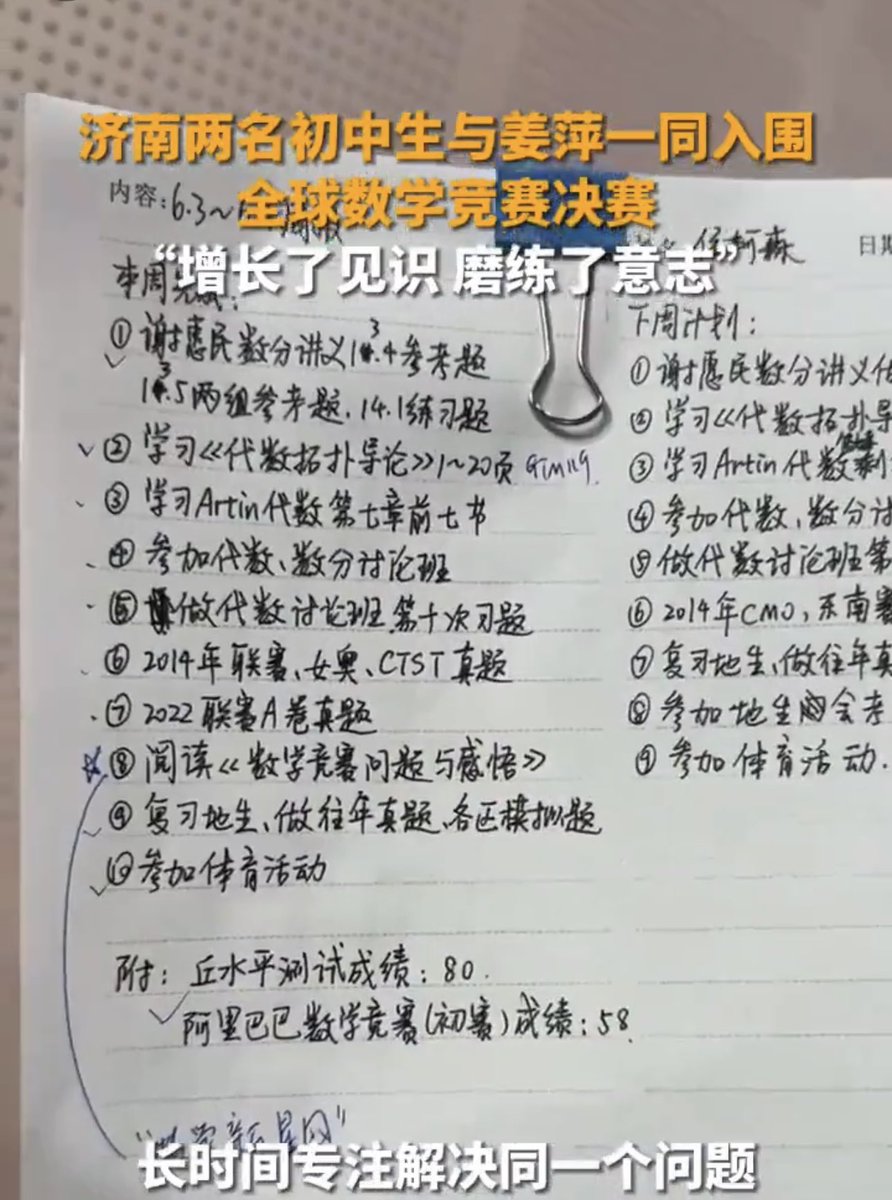 济南两名初中生与姜萍一同入围
全球数学竞赛决赛
“增长了见识 磨练了意志”
内容:6.3~
日期
本周完成:
①谢惠民数分讲义13.4参考题
13.5两组参考题.14.1练习题
②学习《代数拓扑导论》1~20页 GTM119.
③学习Artin代数第七章前七节
④参加代数、数分讨论班
⑤做代数讨论班第十次习题
⑥2014年联赛、女奥、CTST真题
⑦2022联赛A卷真题
⑧阅读《数学竞赛问题与感悟》
⑨复习地生、做往年真题、各区模拟题
⑩参加体育活动
附:丘水平测试成绩:80.
阿里巴巴数学竞赛(初赛)成绩:58.
下周计划:
①谢惠民数分讲义
②学习《代数拓扑导
③学习Artin代数
④参加代数、数分讨
⑤做代数讨论班第
⑥2014年CMO、东南赛
⑦复习地生、做往年真
⑧参加地生会考
⑨参加体育活动.
长时间专注解决同一个问题